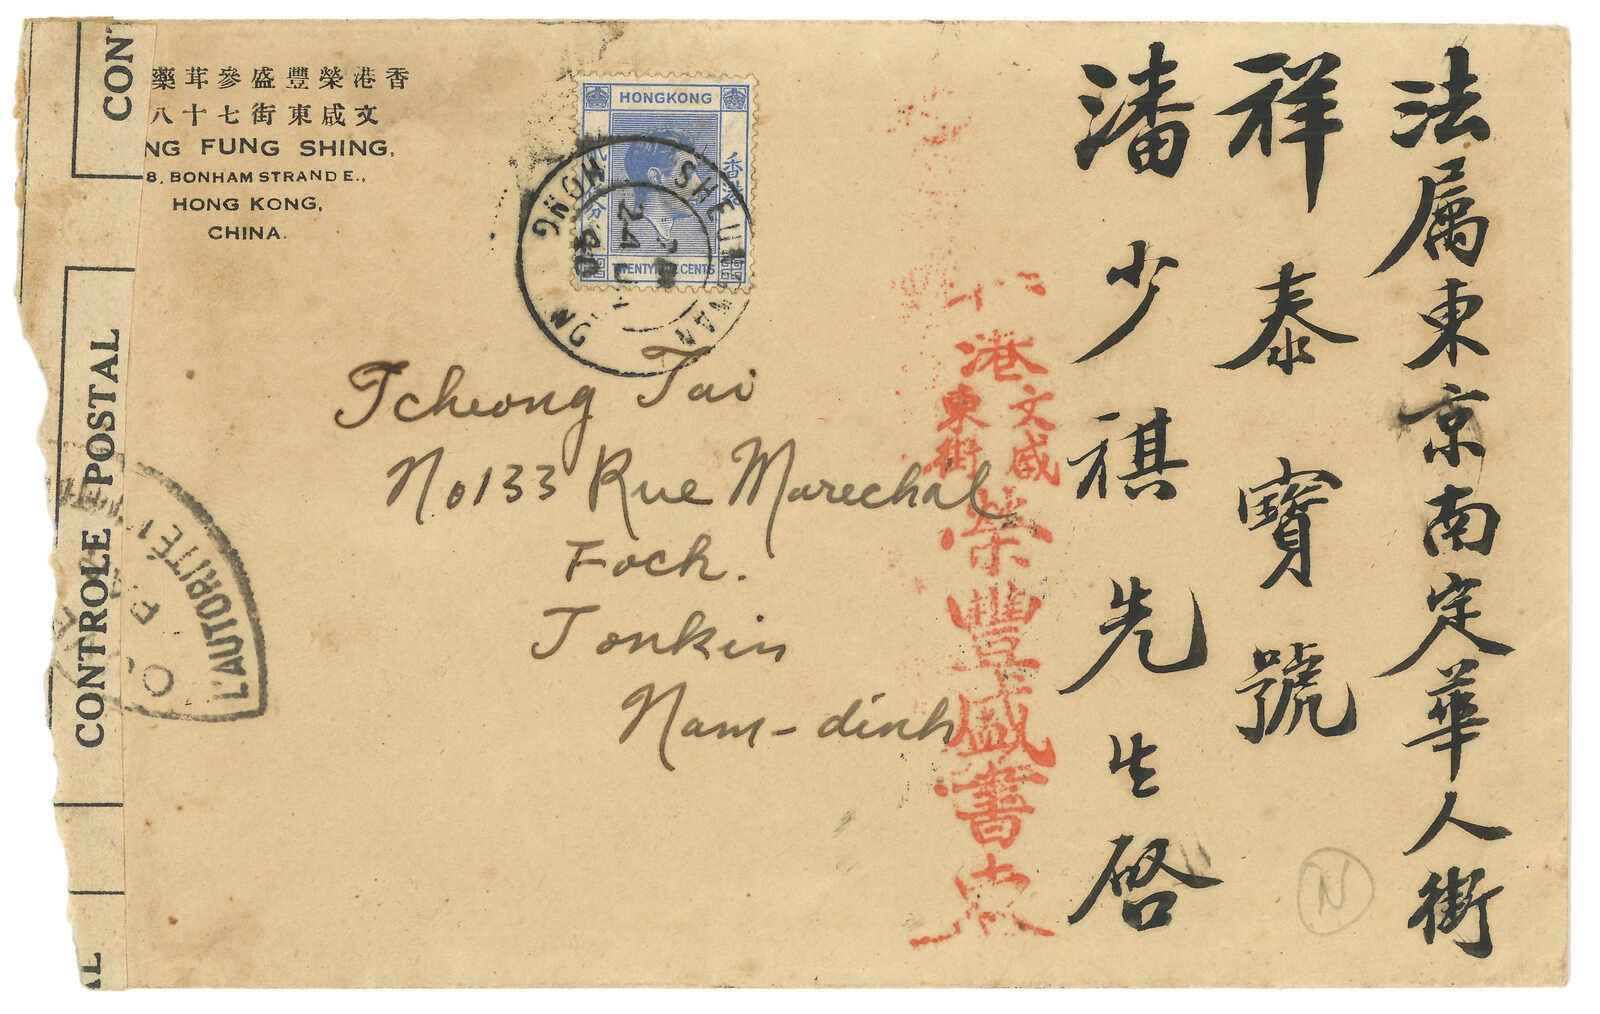 香港榮豐盛參茸藥
文咸東街七十八
NG FUNG SHING,
8, BONHAM STRAND E.,
HONG KONG,
CHINA.
HONGKONG
香港
TWENTY CENTS
SHEUNG WAN
HONG KONG
24
40
Tcheong Tai
No 133 Rue Marechal
Foch.
Tonkin
Nam-dinh
法属東京南定華人街
祥泰寶號
潘少祺先生啓
港
文咸
東街
榮豐盛書柬
CONT
CONTROLE POSTAL
AL
L'AUTORITÉ
N